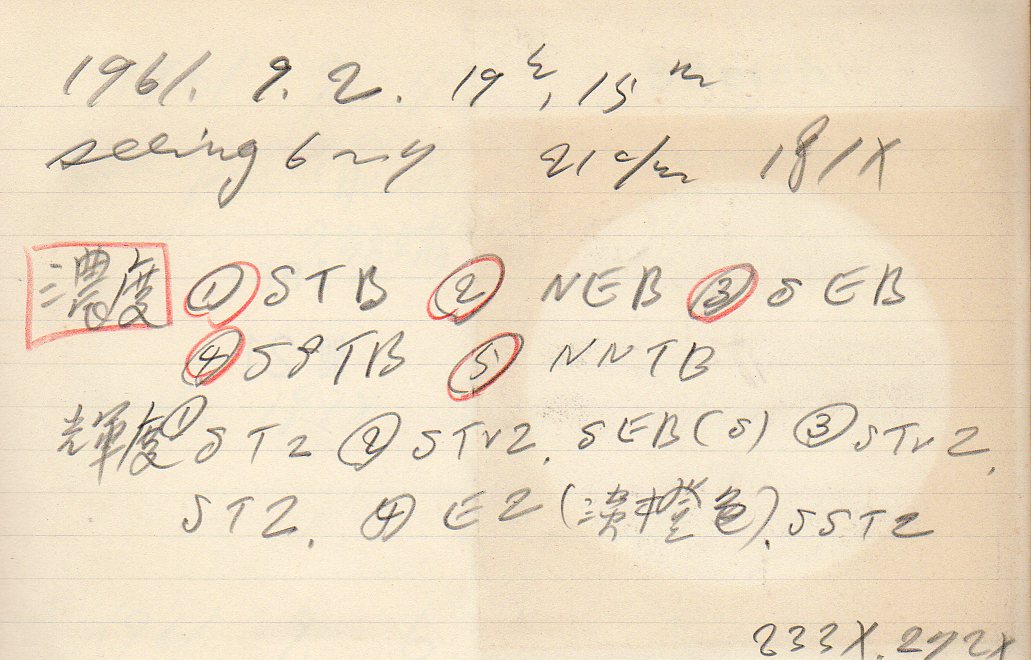 1961. 9. 2. 19h, 15m
seeing 6~7 21c/m 181X
濃度 ① STB ② NEB ③ SEB
④ SSTB ⑤ NNTB
輝度 ① STZ ② STrZ. SEB(S) ③ STrZ.
STZ. ④ EZ (淡橙色). SSTZ
233X. 272X